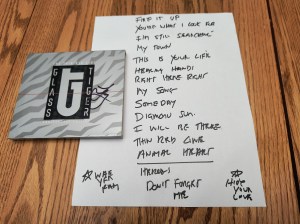 GLASS
TIGER
FIRE IT UP
YOU'RE WHAT I LOOK FOR
I'M STILL SEARCHING
MY TOWN
THIS IS YOUR LIFE
HEALING HANDS
RIGHT HERE RIGHT
MY SONG
SOMEDAY
DIAMOND SUN
I WILL BE THERE
THIN RED LINE
ANIMAL HEART
DON'T FORGET
ME
YOUR
LOVE